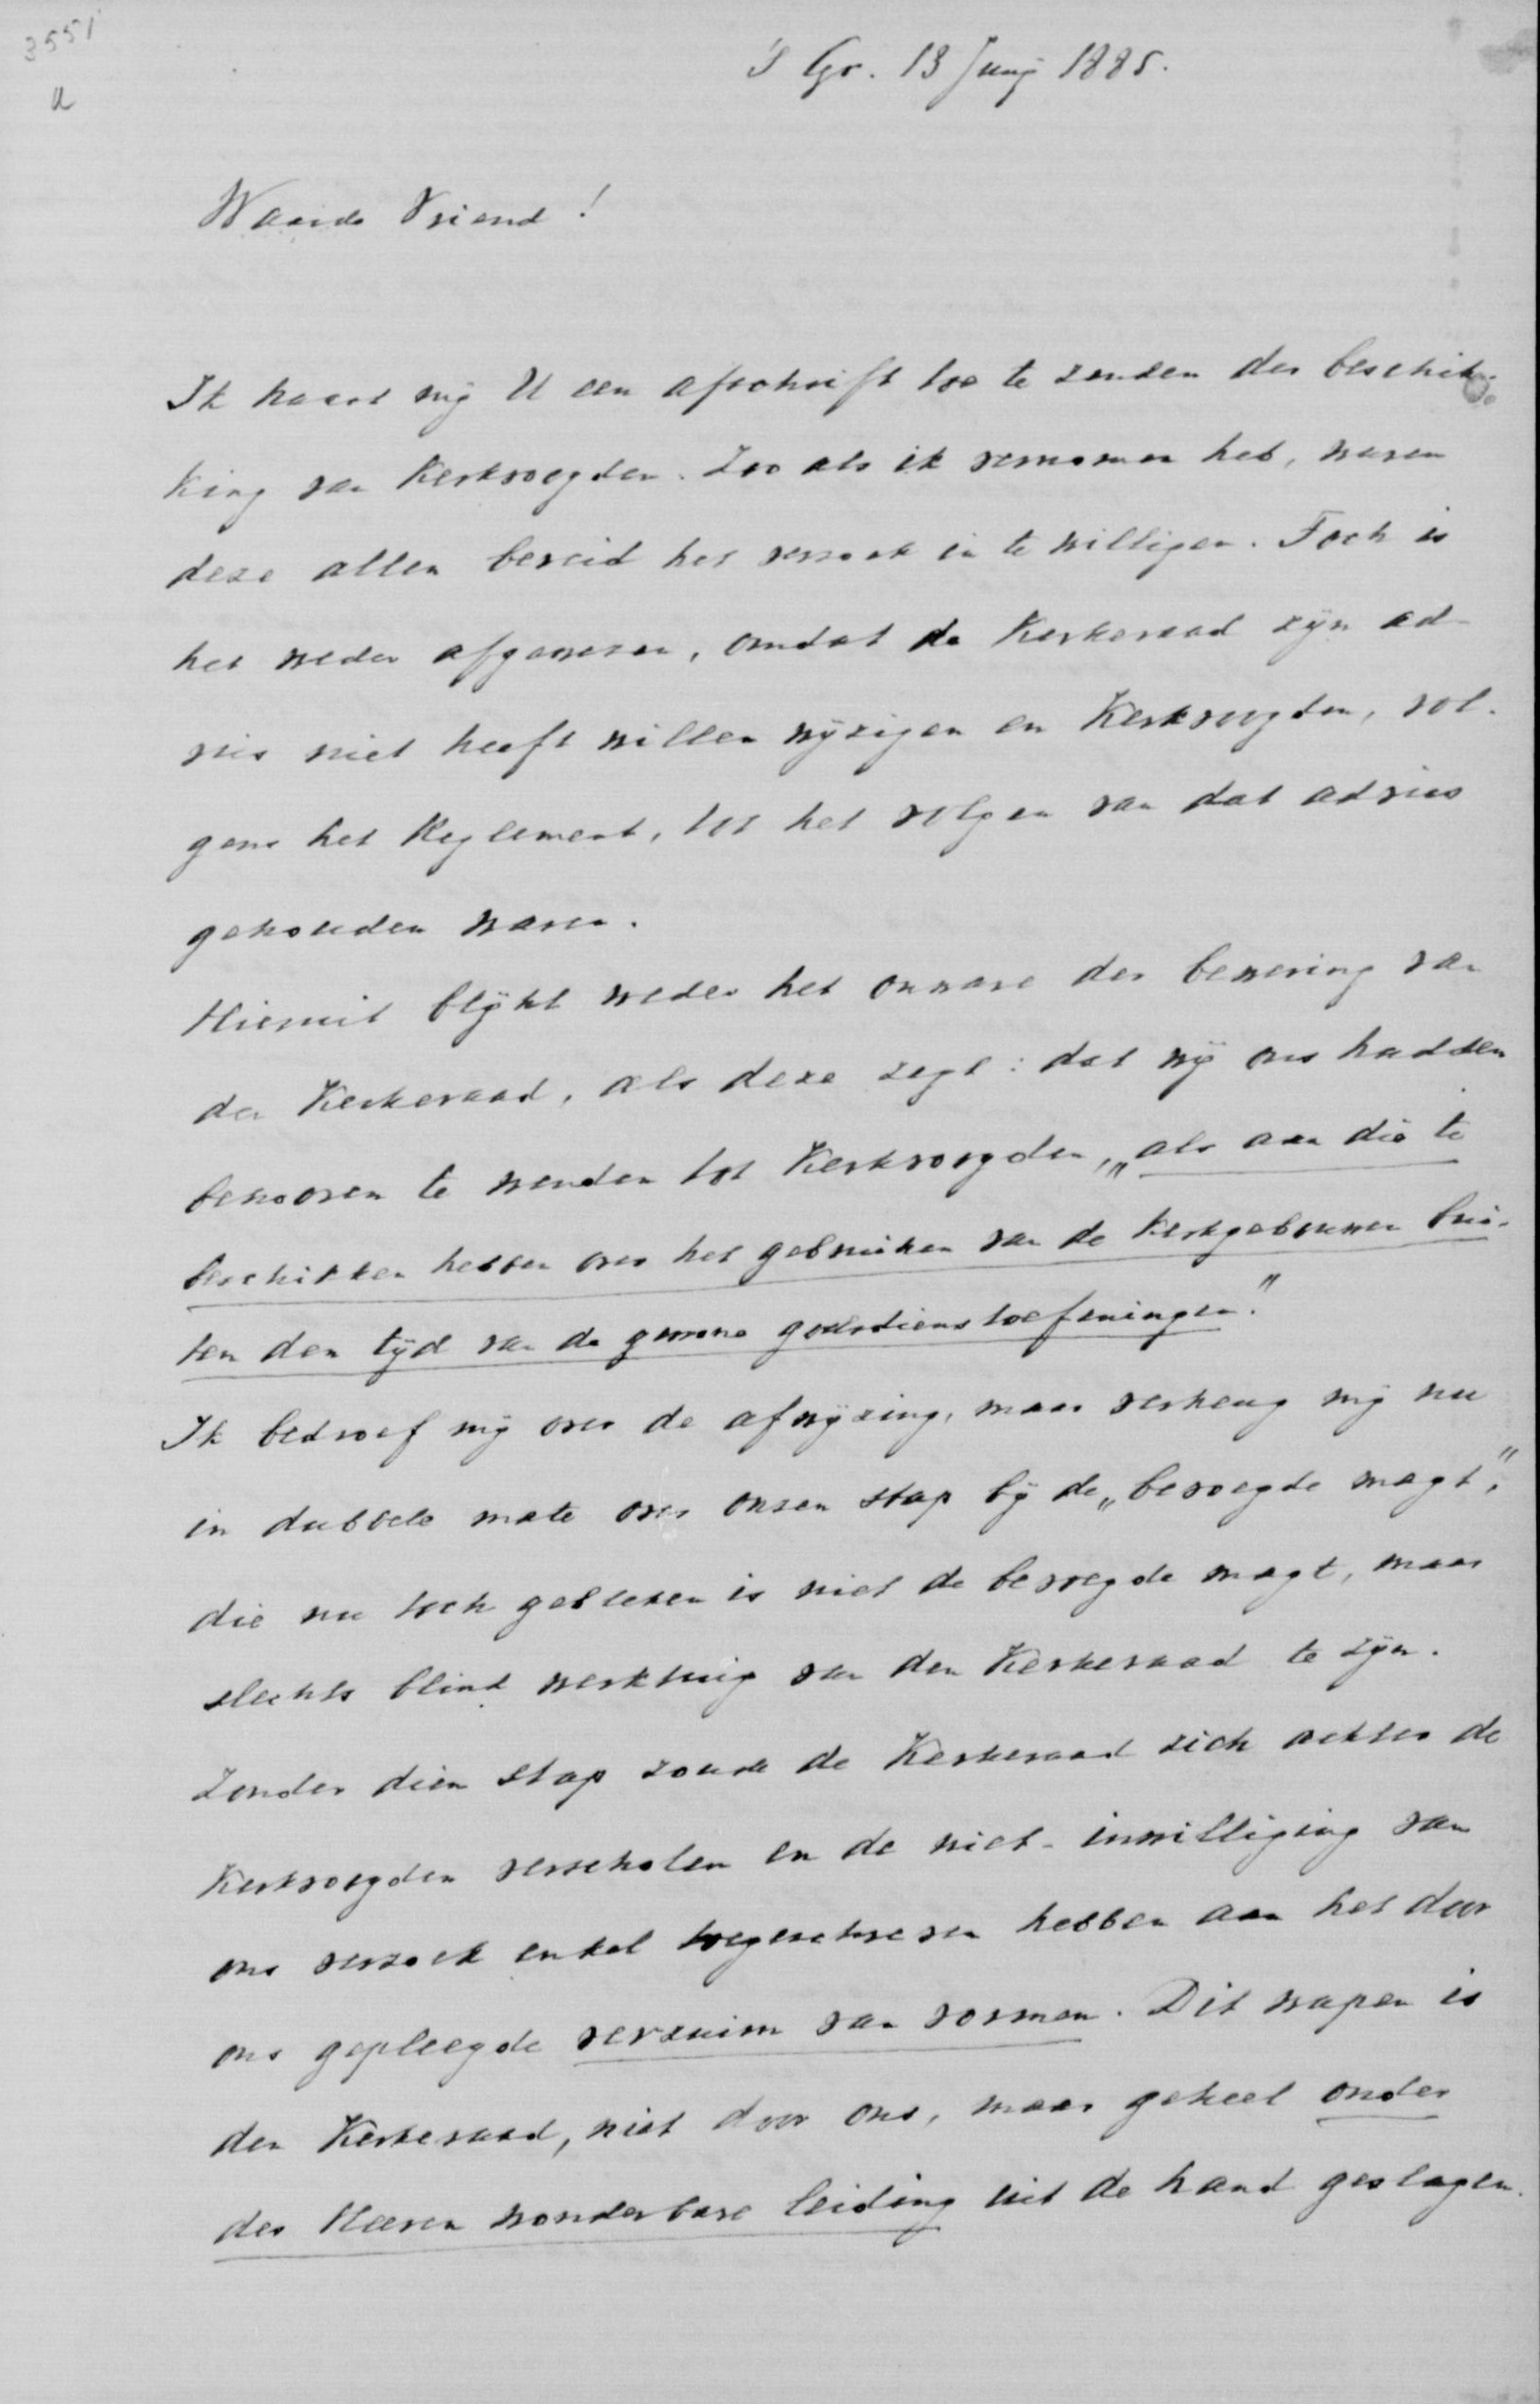 3551
a
's Gr. 13 Junij 1885.
Waarde Vriend!
Ik haast mij U een afschrift toe te zenden der beschik-
king van Kerkvoogden. Zoo als ik vernomen heb, waren
deze allen bereid het verzoek in te willigen. Toch is
het weder afgewezen, omdat de Kerkeraad zijn ad-
vis niet heeft willen wijzigen en Kerkvoogden, vol-
gens het Reglement, tot het volgen van dat advies
gehouden waren.
Hieruit blijkt weder het onware der bewering van
den Kerkeraad, als deze zegt: dat wij ons hadden
behooren te wenden tot Kerkvoogden, „als aan die te
beschikken hebben over het gebruiken van de Kerkgebouwen bui-
ten den tijd van de gewone godsdienstoefeningen."
Ik bedroef mij over de afwijzing, maar verheug mij nu
in dubbele mate over onzen stap bij de „bevoegde magt",
die nu toch gebleken is niet de bevoegde magt, maar
slechts blind werktuig van den Kerkeraad te zijn.
Zonder dien stap zoude de Kerkeraad zich achter de
Kerkvoogden verscholen en de niet-inwilliging van
ons verzoek enkel toegeschreven hebben aan het door
ons gepleegde verzuim van vormen. Dit wapen is
den Kerkeraad, niet door ons, maar geheel onder
des Heeren wonderbare leiding uit de hand geslagen.